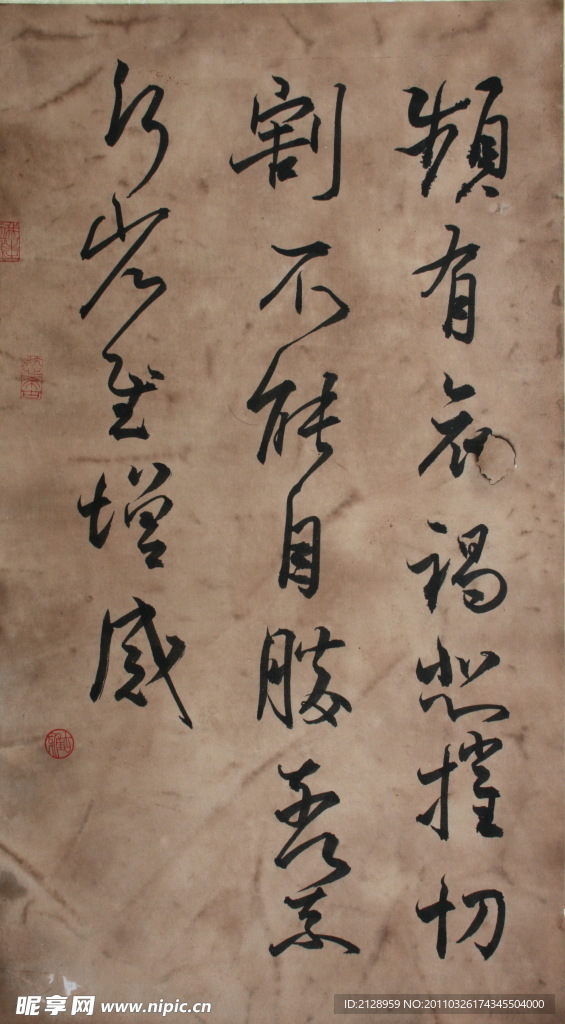 頻有哀禍悲摧切
割不能自勝奈何奈
何省慰增感
昵享网 www.nipic.cn
ID:2128959 NO:20110326174345504000